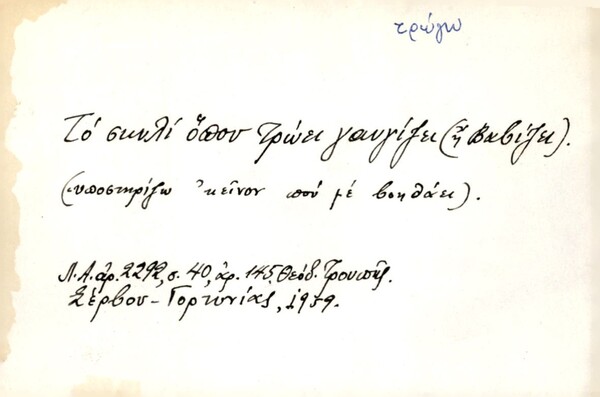 τρώγω
Τό σκυλί ὅπου τρώει γαυγίζει (ἤ βαβίζει).
(ὑποστηρίζω ᾿κεῖνον πού μέ βοηθάει).
Λ.Α. ἀρ. 2292, σ. 40, ἀρ. 145, Θεόδ. Τρουπῆς.
Σέρβου - Γορτυνίας, 1959.